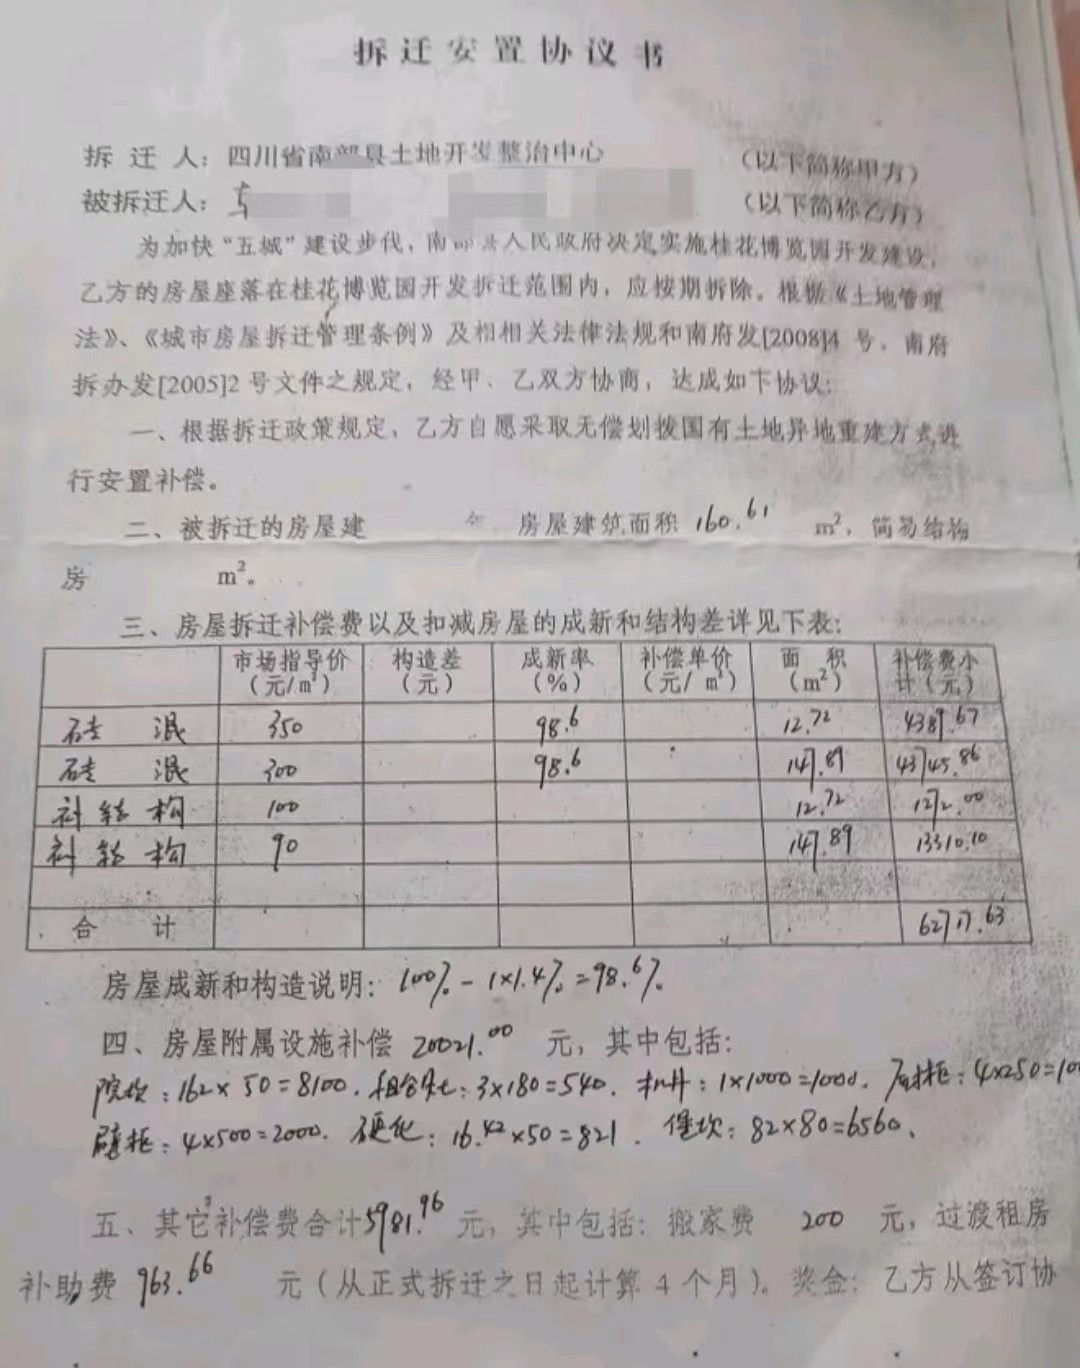 拆迁安置协议书
拆迁人：四川省南部县土地开发整治中心（以下简称甲方）
被拆迁人：（以下简称乙方）
为加快“五城”建设步伐，南部县人民政府决定实施桂花博览园开发建设，
乙方的房屋座落在桂花博览园开发拆迁范围内，应按期拆除。根据《土地管理
法》、《城市房屋拆迁管理条例》及相相关法律法规和南府发[2008]4号、南府
拆办发[2005]2号文件之规定，经甲、乙双方协商，达成如下协议：
一、根据拆迁政策规定，乙方自愿采取无偿划拨国有土地异地重建方式进
行安置补偿。
二、被拆迁的房屋建 房屋建筑面积 160.61 m²，简易结构
房 m²。
三、房屋拆迁补偿费以及扣减房屋的成新和结构差详见下表：
市场指导价（元/㎡） 构造差（元） 成新率（%） 补偿单价（元/㎡） 面积（m²） 补偿费小计（元）
砖混 350 98.6 12.72 4389.67
砖混 300 98.6 147.89 43745.86
补结构 100 12.72 1272.00
补结构 90 147.89 13310.10
合计 62717.63
房屋成新和构造说明：100%-1×1.4%=98.6%
四、房屋附属设施补偿 20021.00 元，其中包括：
院坎：162×50=8100. 3×180=540. 1×1000=1000. 4×250=100
壁柜：4×500=2000. 硬化：16.42×50=821. 堡坎：82×80=6560、
五、其它补偿费合计5981.96元，其中包括：搬家费 200 元，过渡租房
补助费 963.66 元（从正式拆迁之日起计算4个月）。奖金：乙方从签订协